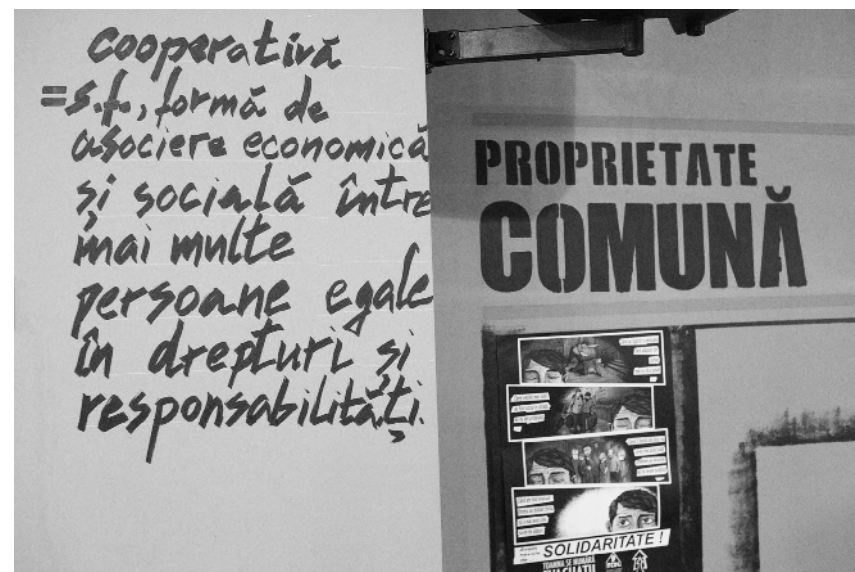 cooperativă
= s.f., formă de
asociere economică
și socială între
mai multe
persoane egale
în drepturi și
responsabilități.
PROPRIETATE
COMUNĂ
SOLIDARITATE !
TOAMNA SE NUMĂRĂ
EVACUAȚII